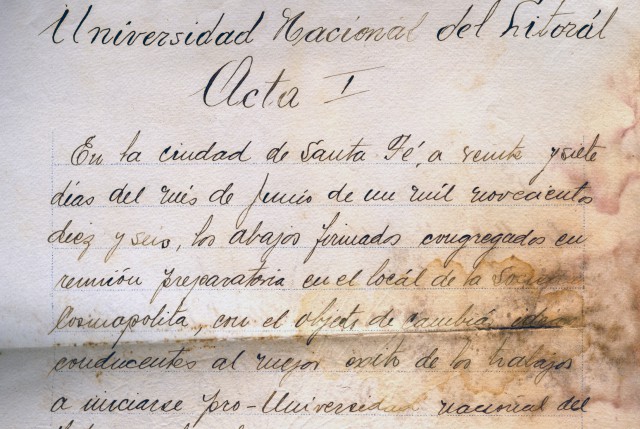 Universidad Nacional del Litorál
Acta I
En la ciudad de Santa Fé, a veinte y siete
días del més de Junio de un mil novecientos
diez y seis, los abajos firmados congregados en
reunión preparatoria en el locál de la
Cosmopolita, con el objeto de cambiár
conducentes al mejor exito de los trabajos
a iniciarse pro-Universidad nacional del